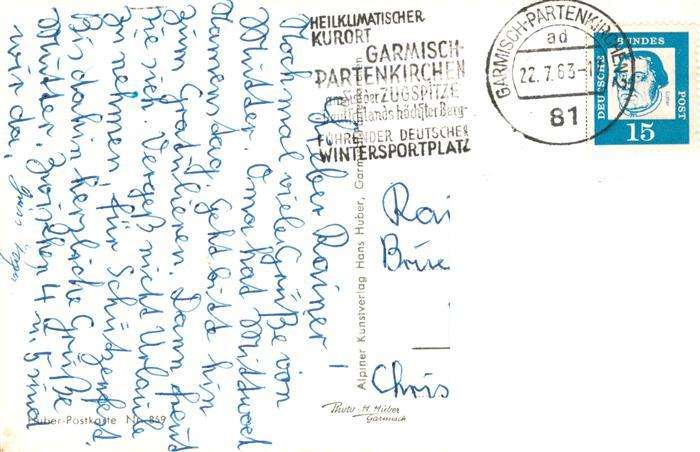 HEILKLIMATISCHER
KURORT
GARMISCH-
PARTENKIRCHEN
am Fuße der ZUGSPITZE
Deutschlands höchster Berg-
FÜHRENDER DEUTSCHER
WINTERSPORTPLATZ
GARMISCH-PARTENKIRCHEN 2
ad
22.7.63-1
81
DEUTSCHE BUNDES POST
Luther
15
Lieber Rainer!
Nochmal viele Grüße von
Mutter. Oma hat Mittwoch
Namenstag. Geht doch hin
zum Gratulieren. Dann freut
sie sich. Vergeß nicht Urlaub
zu nehmen für Schützenfest.
Bis dahin herzliche Grüße
Mutter. Zwischen 4 u. 5 sind
wir da.
Gruß
Rai
Brüse
Chris
Alpiner Kunstverlag Hans Huber, Garmisch-Partenkirchen
Photo-H. Huber
Garmisch
Huber-Postkarte Nr. 869